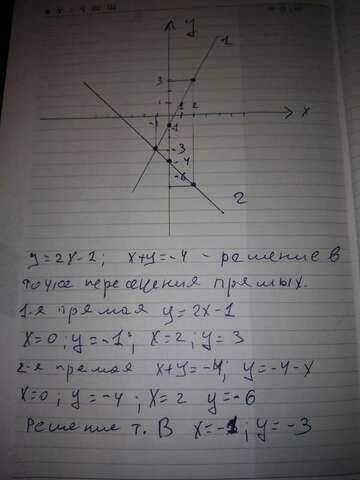 y
1
3
1
2
x
-1
-1
-3
-4
-6
2
y=2x-1; x+y=-4 - решение в
точке пересечения прямых.
1-я прямая y=2x-1
x=0; y=-1; x=2; y=3
2-я прямая x+y=-4; y=-4-x
x=0; y=-4; x=2 y=-6
Решение т. В x=-1; y=-3